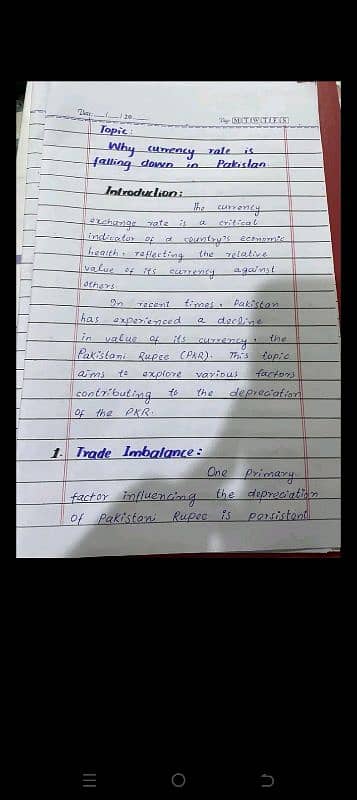 Date: __/__/20__ Day: M T W T F S
Topic:
Why currency rate is
falling down in Pakistan
Introduction:
The currency
exchange rate is a critical
indicator of a country's economic
health, reflecting the relative
value of its currency against
others
In recent times, Pakistan
has experienced a decline
in value of its currency, the
Pakistani Rupee (PKR). This topic
aims to explore various factors
contributing to the depreciation
of the PKR.
1. Trade Imbalance:
One Primary
factor influencing the depreciation
of Pakistani Rupee is parsistent